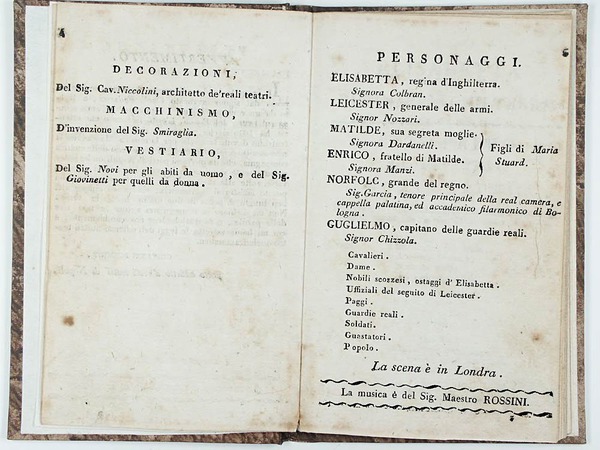 4
DECORAZIONI,
Del Sig. Cav. Niccolini, architetto de'reali teatri.
MACCHINISMO,
D'invenzione del Sig. Smiraglia.
VESTIARIO,
Del Sig. Novi per gli abiti da uomo, e del Sig.
Giovinetti per quelli da donna.
5
PERSONAGGI.
ELISABETTA, regina d'Inghilterra.
Signora Colbran.
LEICESTER, generale delle armi.
Signor Nozzari.
MATILDE, sua segreta moglie.
Signora Dardanelli.
ENRICO, fratello di Matilde.
Signora Manzi.
Figli di Maria
Stuard.
NORFOLC, grande del regno.
Sig. Garcia, tenore principale della real camera, e
cappella palatina, ed accademico filarmonico di Bo-
logna.
GUGLIELMO, capitano delle guardie reali.
Signor Chizzola.
Cavalieri.
Dame.
Nobili scozzesi, ostaggi d'Elisabetta.
Uffiziali del seguito di Leicester.
Paggi.
Guardie reali.
Soldati.
Guastatori.
Popolo.
La scena è in Londra.
La musica é del Sig. Maestro ROSSINI.